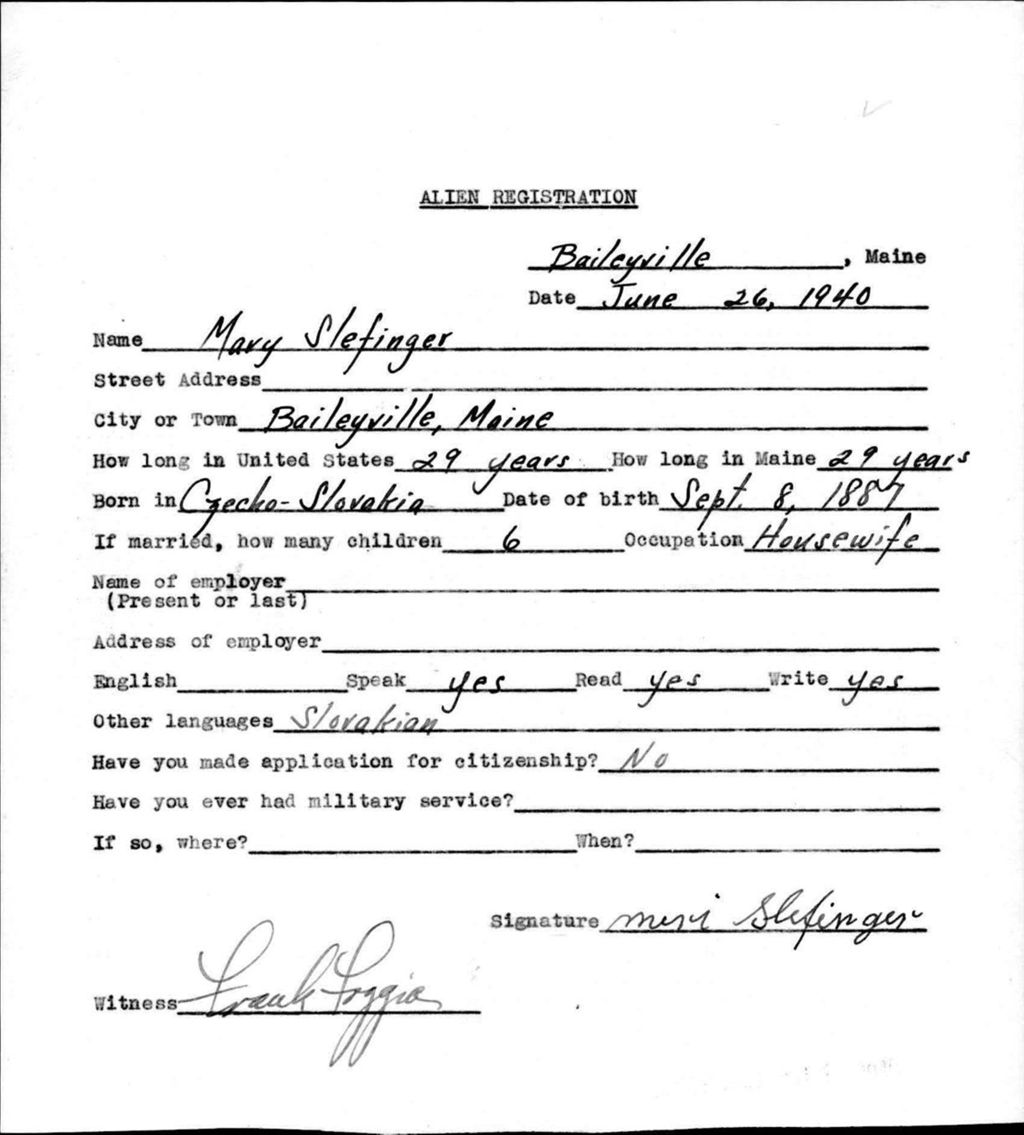 ALIEN REGISTRATION
Baileyville, Maine
Date June 26, 1940
Name Mary Slefinger
Street Address
City or Town Baileyville, Maine
How long in United States 29 years How long in Maine 29 years
Born in Czecho-Slovakia Date of birth Sept. 8, 1887
If married, how many children 6 Occupation Housewife
Name of employer
(Present or last)
Address of employer
English Speak yes Read yes Write yes
Other languages Slovakian
Have you made application for citizenship? No
Have you ever had military service?
If so, where? When?
Signature meri Slefinger
Witness Frank Foggia